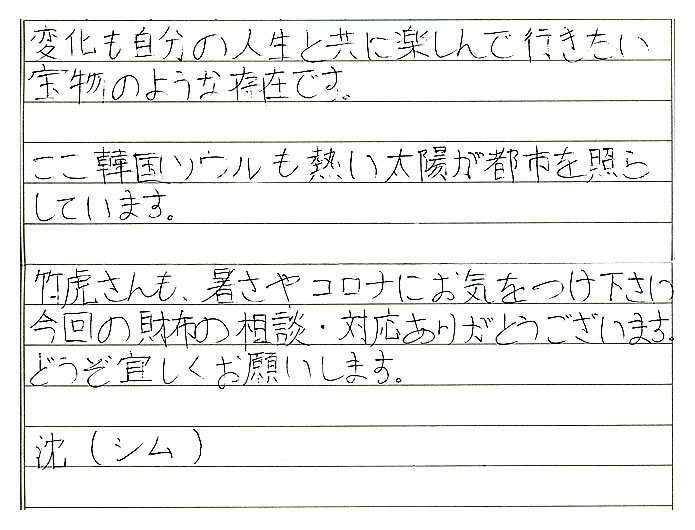 変化も自分の人生と共に楽しんで行きたい
宝物のような存在です。
ここ韓国ソウルも熱い太陽が都市を照ら
しています。
竹虎さんも、暑さやコロナにお気をつけ下さい
今回の財布の相談・対応ありがとうございます。
どうぞ宜しくお願いします。
沈(シム)